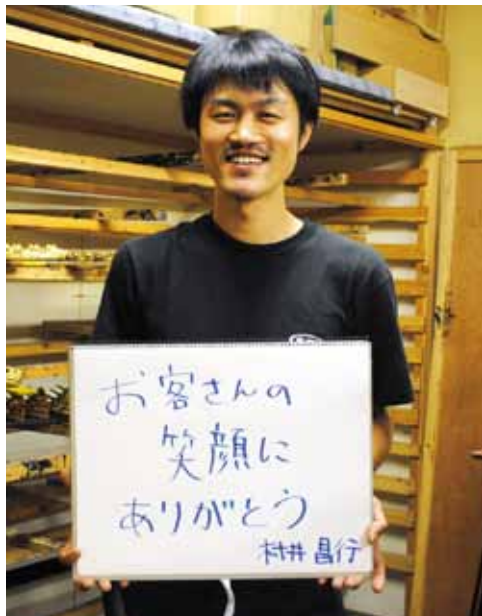 お客さんの
笑顔に
ありがとう
村井昌行